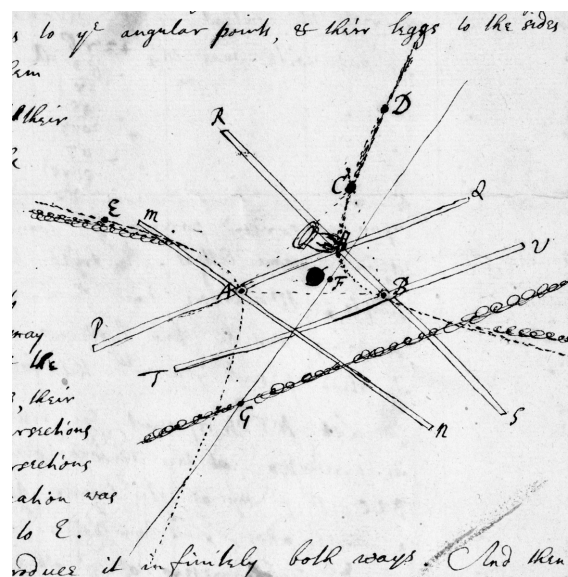 s to yᵉ angular points, & their leggs to the sides
hem
their
R
D
C
E
M
Q
V
A
F
B
P
way
T
the
, their
G
S
n
rsections
rsections
ation was
to E.
roduce it infinitely both ways. And then